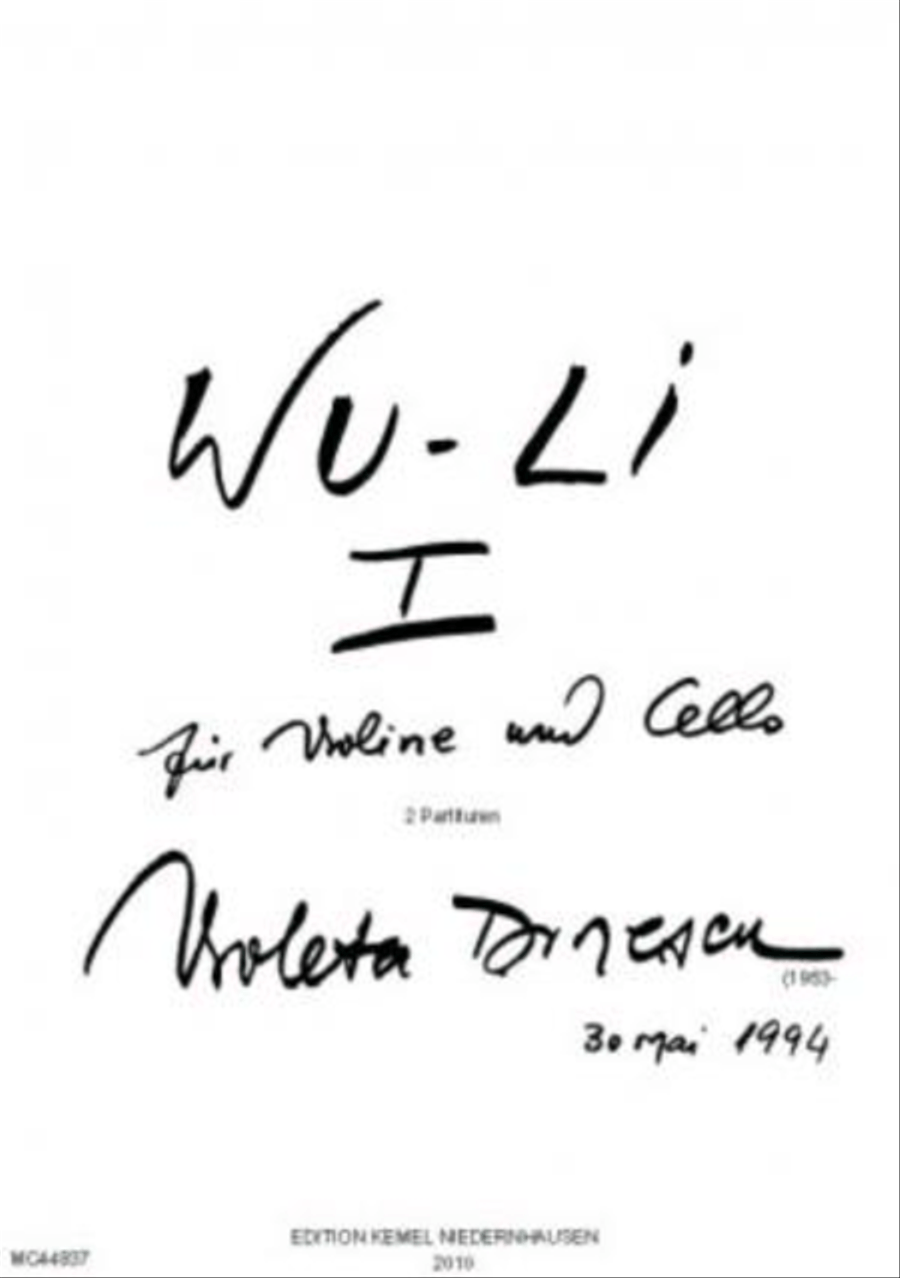 WU-Li
I
für Violine und Cello
2 Partituren
Violeta Dinescu
(1953-
30 mai 1994
EDITION KEMEL NIEDERNHAUSEN
MC44937